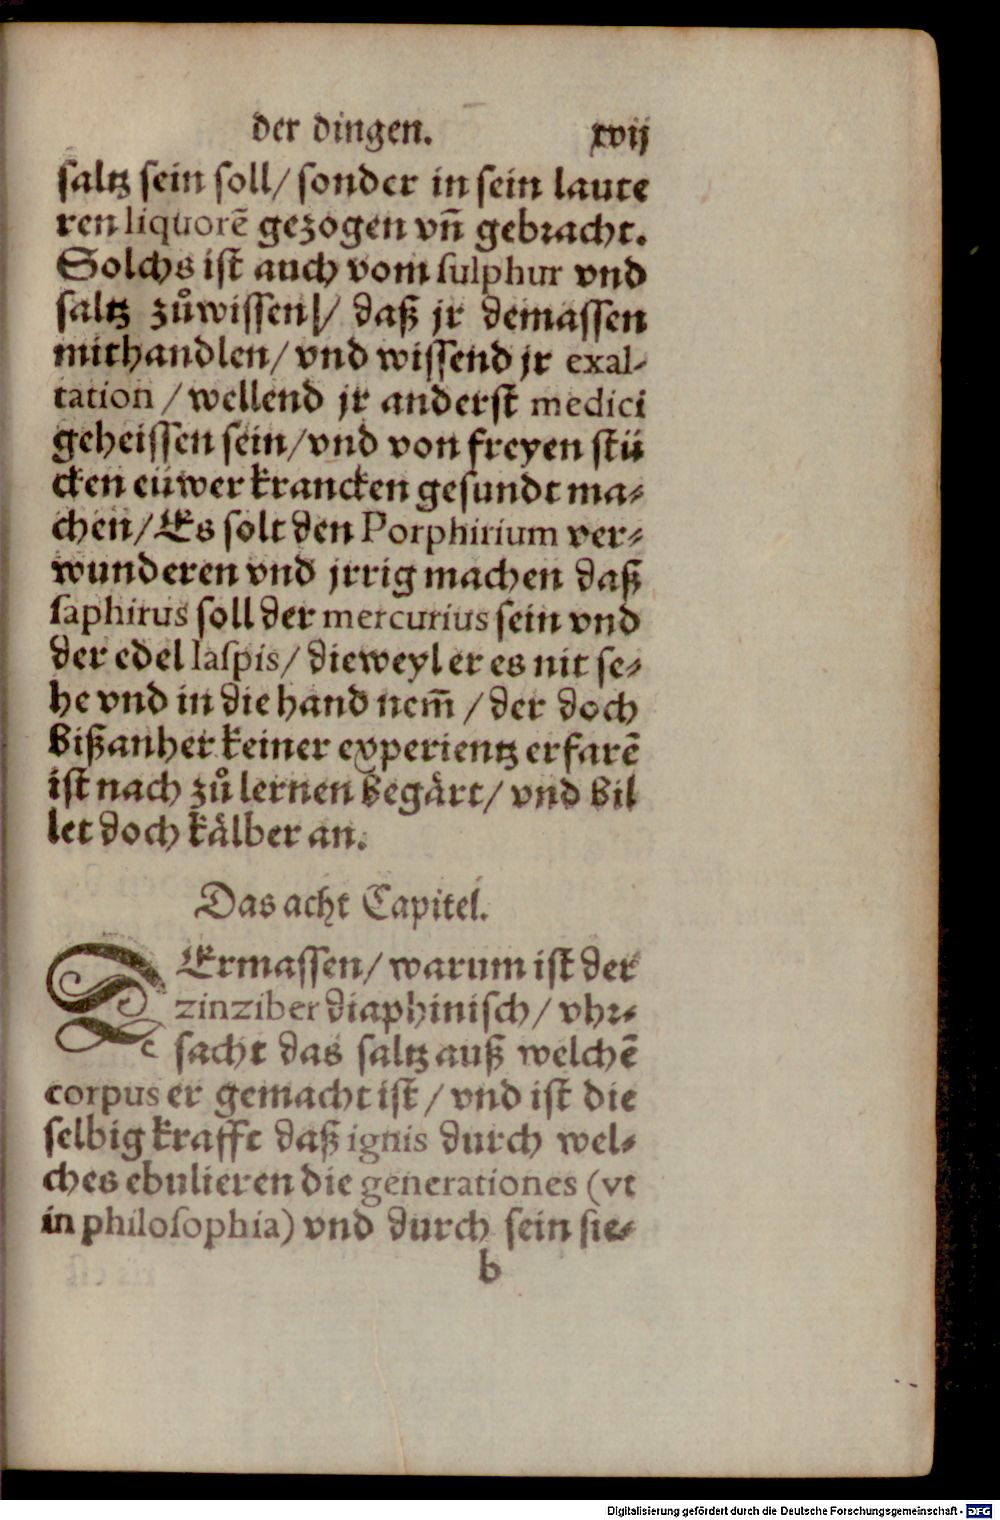 der dingen. xvij
saltz sein soll/ sonder in sein laute
ren liquorẽ gezogen vñ gebracht.
Solchs ist auch vom sulphur vnd
saltz zůwissen/ daß jr demassen
mithandlen/ vnd wissend jr exal-
tation / wellend jr anderst medici
geheissen sein/ vnd von freyen stü
cken eüwer krancken gesundt ma-
chen/ Es solt den Porphirium ver-
wunderen vnd jrrig machen daß
saphirus soll der mercurius sein vnd
der edel Iaspis/ dieweyl er es nit se-
he vnd in die hand nem̃ / der doch
bißanher keiner experientz erfarẽ
ist nach zů lernen begärt/ vnd bil
let doch kälber an.
Das acht Capitel.
DErmassen/ warum ist der
zinziber diaphinisch/ vhr-
sacht das saltz auß welchẽ
corpus er gemacht ist / vnd ist die
selbig krafft daß ignis durch wel-
ches ebulieren die generationes (vt
in philosophia) vnd durch sein sie-
b
Digitalisierung gefördert durch die Deutsche Forschungsgemeinschaft - DFG